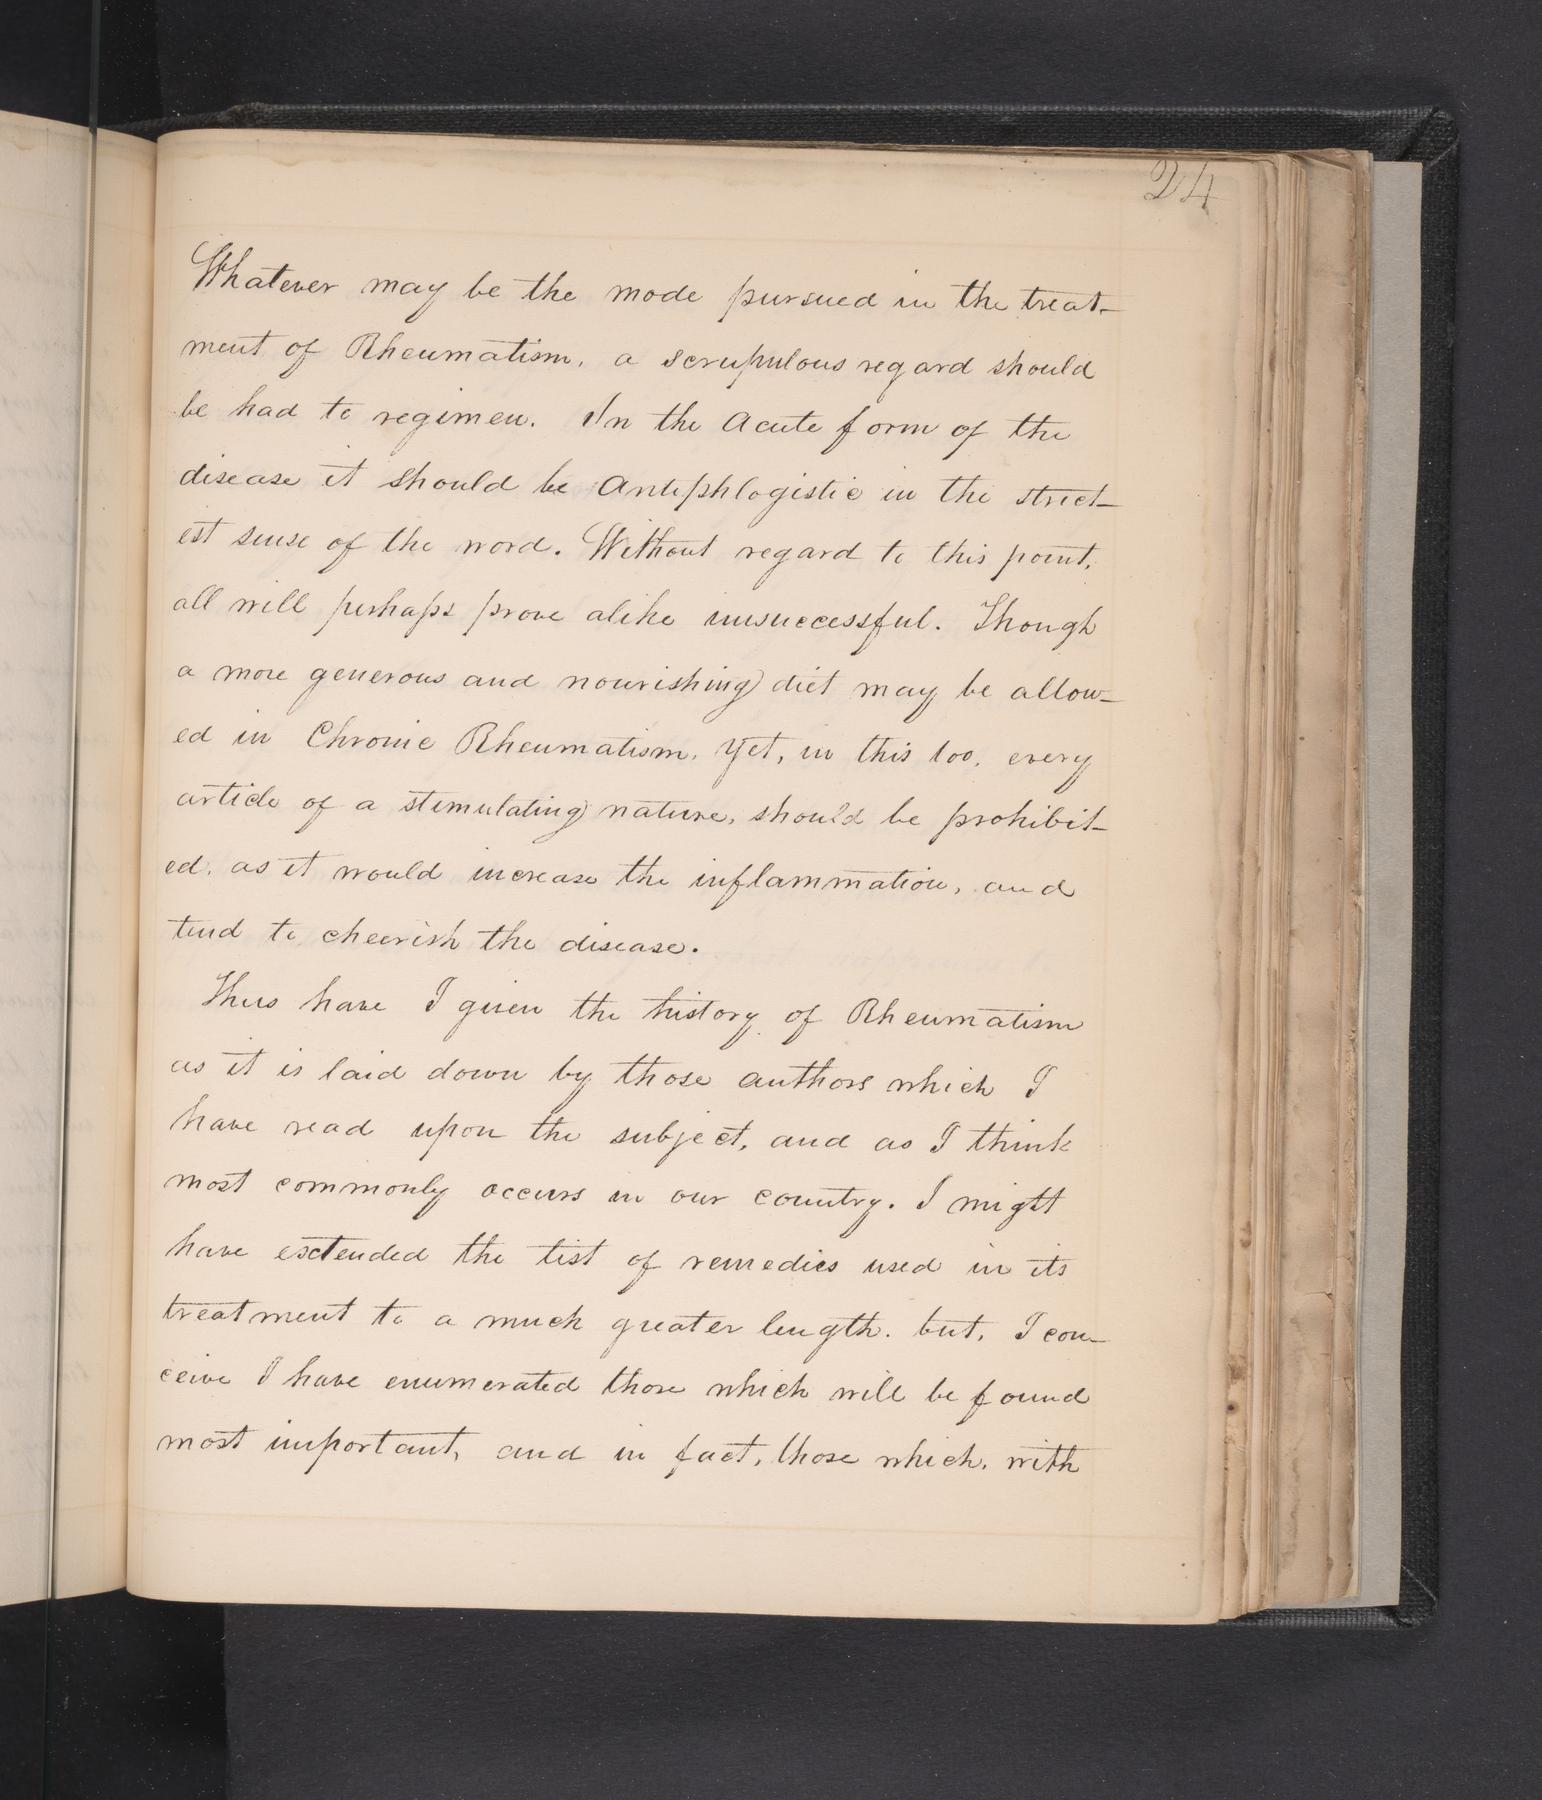 24
Whatever may be the mode pursued in the treat-
ment of Rheumatism, a scrupulous regard should
be had to regimen. In the Acute form of the
disease it should be Antiphlogistic in the strict-
est sense of the word. Without regard to this point,
all will perhaps prove alike unsuccessful. Though
a more generous and nourishing diet may be allow-
ed in Chronic Rheumatism, yet, in this too, every
article of a stimulating nature, should be prohibit-
ed, as it would increase the inflammation, and
tend to cheerish the disease.
Thus have I given the history of Rheumatism
as it is laid down by those authors which I
have read upon the subject, and as I think
most commonly occurs in our country. I might
have extended the list of remedies used in its
treatment to a much greater length, but, I con-
ceive I have enumerated those which will be found
most important, and in fact, those which, with